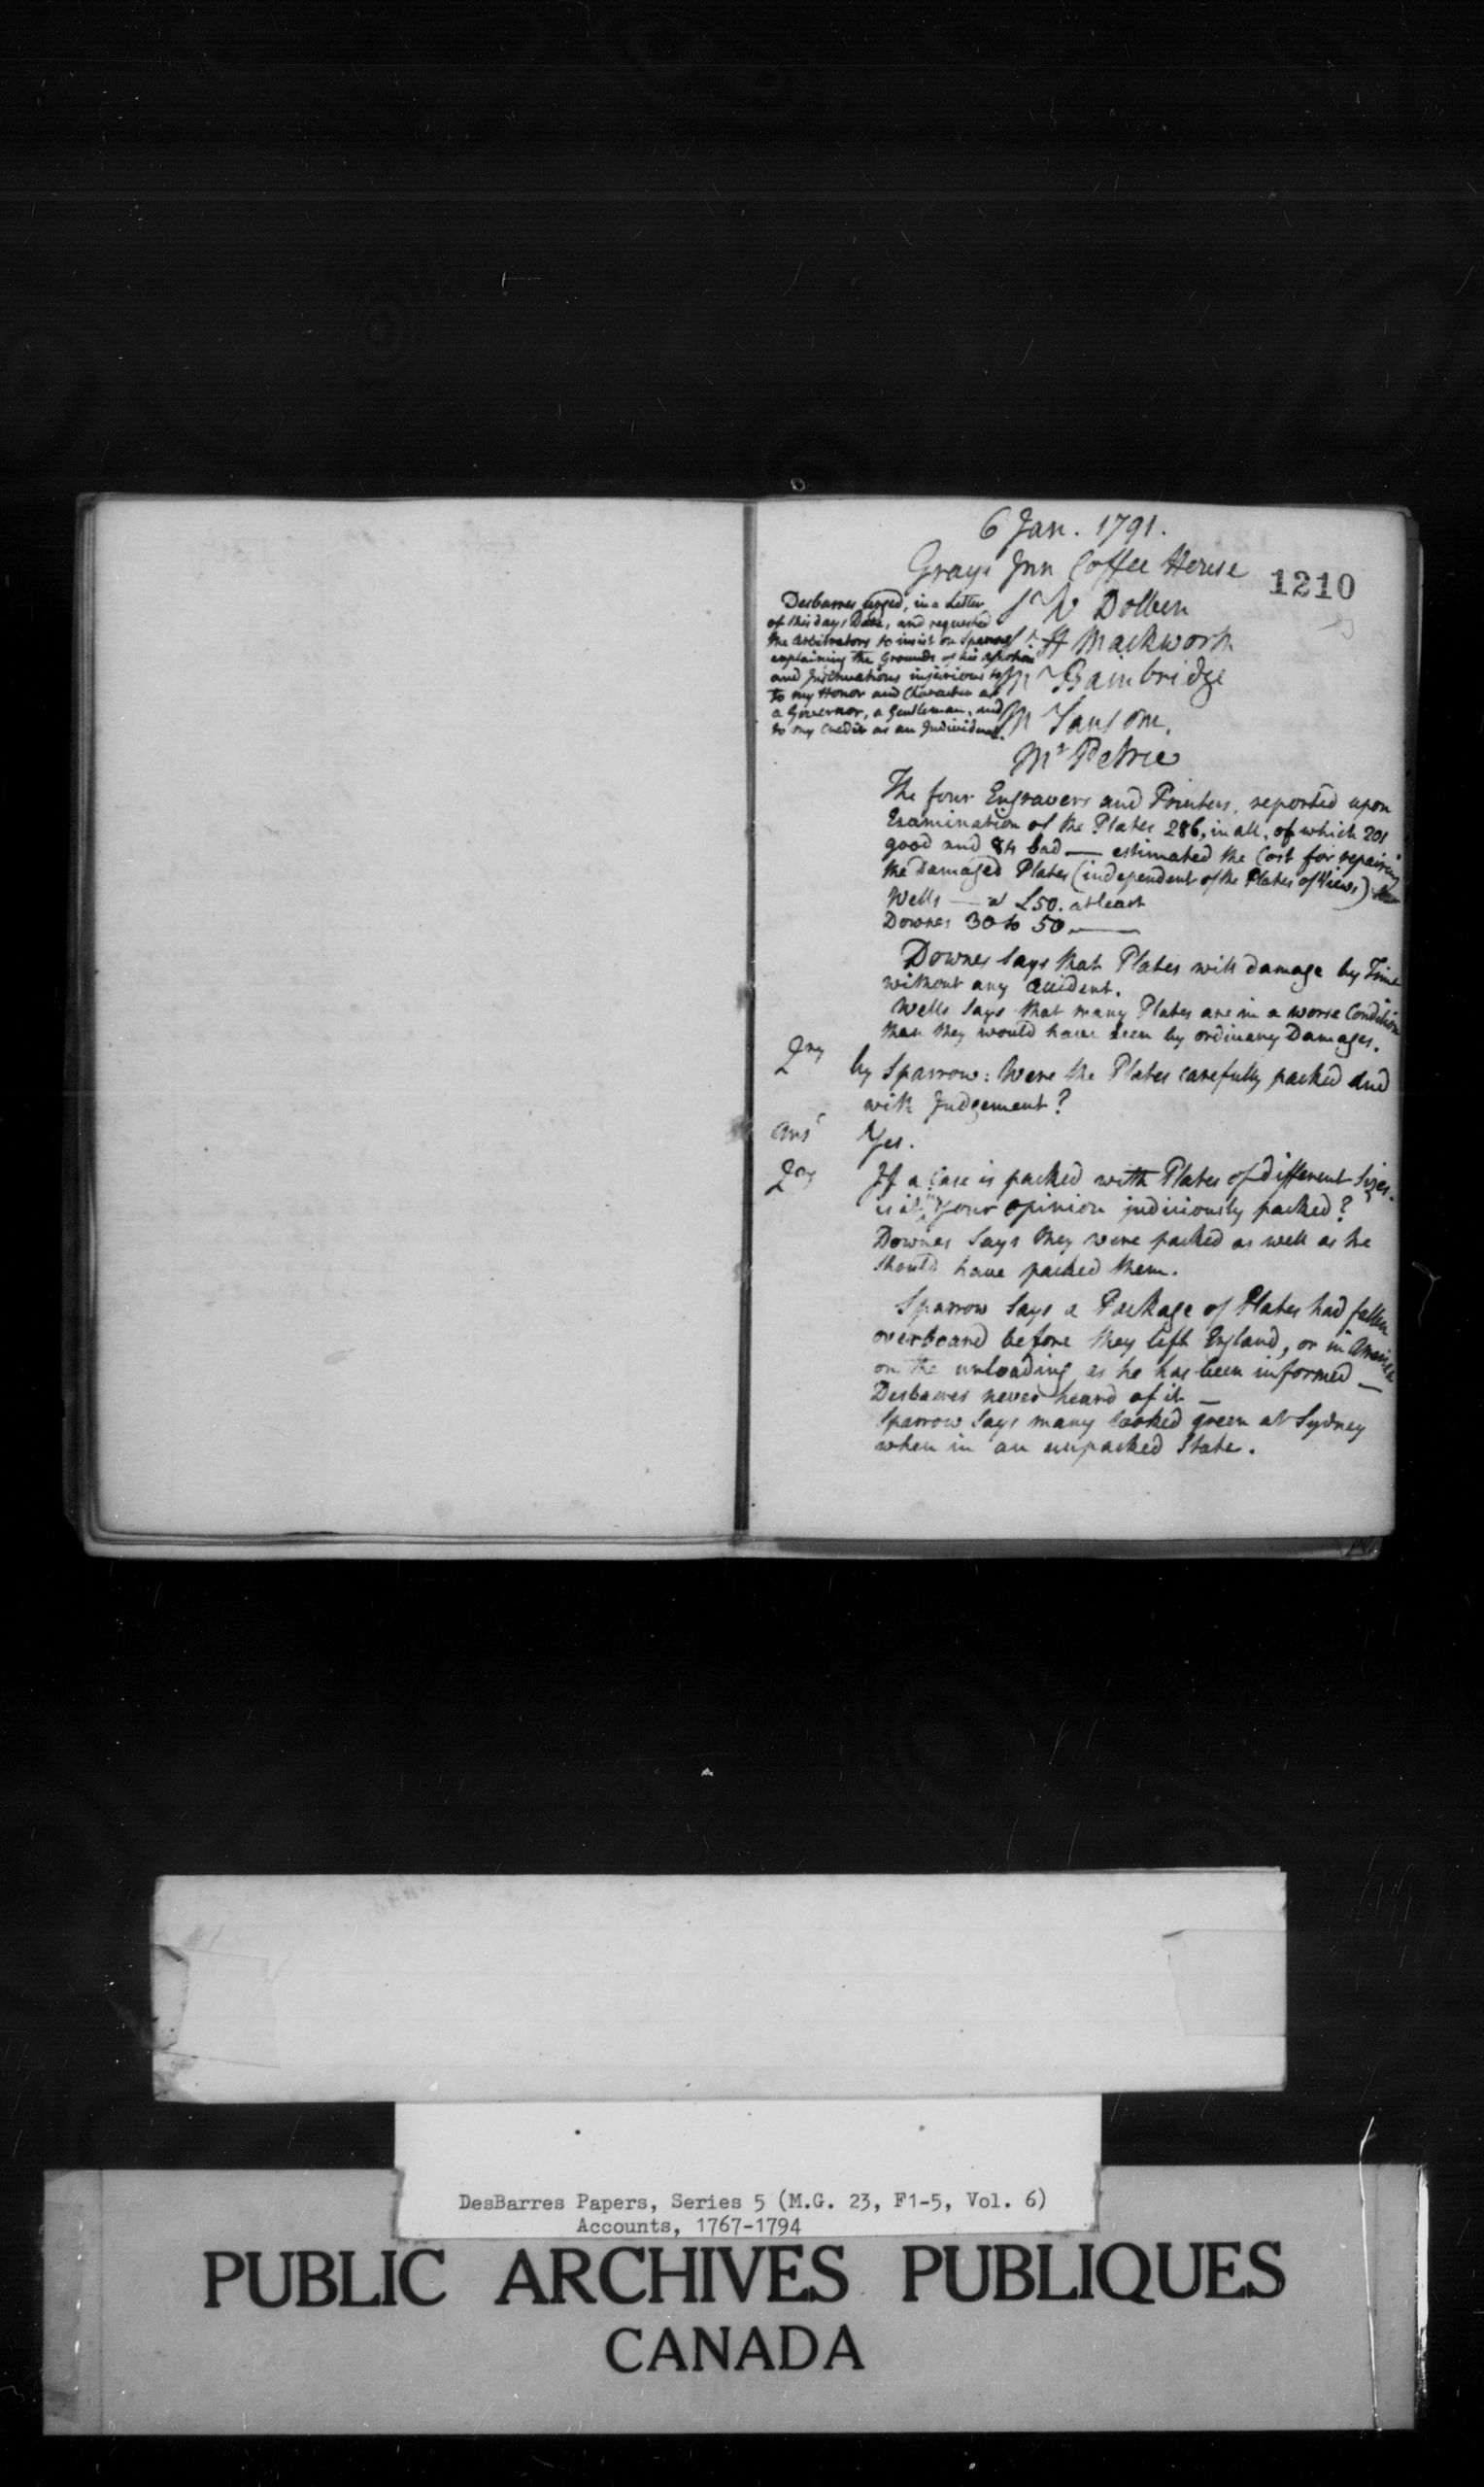 6 Jan. 1791.
Grays Inn Coffee House
1210
Sr W Dolben
Sr H Mackworth
Mr Bainbridge
Mr Sansom.
Mr Petrie
Desbarres urged, in a Letter
of this days Date, and requested
the Arbitrators to insist on Sparrows
explaining the Grounds of his
and Insinuations injurious to
to my Honor and Character as
a Governor, a Gentleman, and
to my Credit as an Individual.
The four Engravers and Printers, reported upon
Examination of the Plates 286, in all, of which 201
good and 84 bad — estimated the Cost for repairing
the damaged Plates (independent of the Plates of Views)
Wells — at £50. at least
Downes 30 to 50 —
Downes says that Plates will damage by Time
without any accident.
Wells says that many Plates are in a worse Condition
than they would have been by ordinary Damages.
Qry by Sparrow: Were the Plates carefully packed and
with Judgement?
Ansr Yes.
Qry If a Case is packed with Plates of different Sizes.
is it in your opinion judiciously packed?
Downes says they were packed as well as he
should have packed them.
Sparrow says a Package of Plates had fallen
overboard before they left England, or in America
on the unloading as he has been informed —
Desbarres never heard of it —
Sparrow says many looked green at Sydney
when in an unpacked State.
DesBarres Papers, Series 5 (M.G. 23, F1-5, Vol. 6)
Accounts, 1767-1794
PUBLIC ARCHIVES PUBLIQUES
CANADA